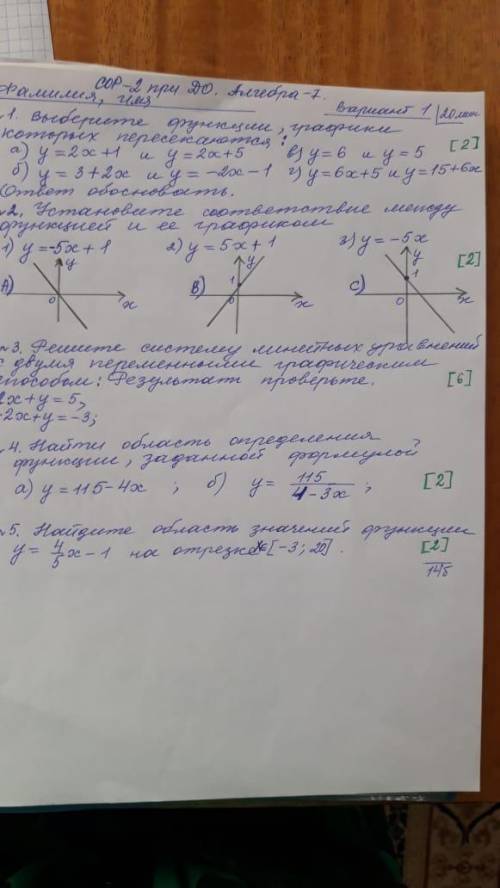 СОР-2 при ДО. Алгебра-7.
Фамилия, имя
Вариант 1 20 мин
1. Выберите функции, графики
которых пересекаются: [2]
а) y=2x+1 и y=2x+5 в) y=6 и y=5
б) y=3+2x и y=-2x-1 г) y=6x+5 и y=15+6x
Ответ обосновать.
№2. Установите соответствие между
функцией и ее графиком
1) y=-5x+1 2) y=5x+1 3) y=-5x [2]
А) y 0 x
В) y 1 0 x
С) y 1 0 x
№3. Решите систему линейных уравнений
с двумя переменными графическим
способом: Результат проверьте. [6]
2x+y=5,
-2x+y=-3;
4. Найти область определения
функции, заданной формулой
а) y=115-4x ; б) y= 115/(4-3x) ; [2]
5. Найдите область значений функции
y= 4/5 x-1 на отрезке [-3; 20]. [2]
14б